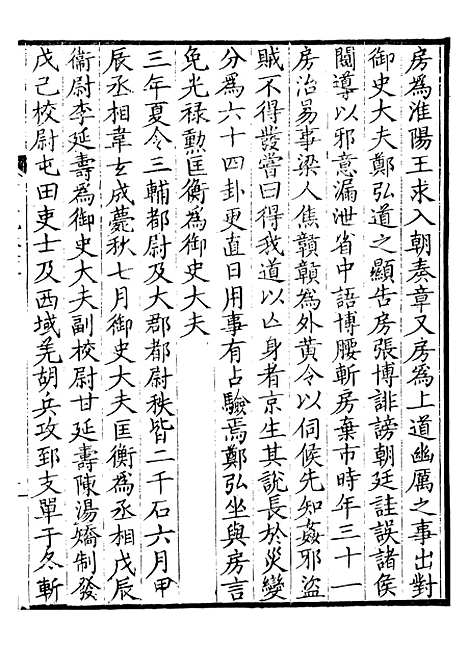 房為淮陽王求入朝奏章又房為上道幽厲之事出對
御史大夫鄭弘道之顯告房張博誹謗朝廷詿誤諸侯
閽導以邪意漏泄省中語博腰斬房棄市時年三十一
房治易事梁人焦贑贑為外黄令以伺候先知姦邪盜
賊不得發嘗曰得我道以亾身者京生其說長於災變
分為六十四卦更直日用事有占驗焉鄭弘坐與房言
免光禄勲匡衡為御史大夫
三年夏令三輔都尉及大郡都尉秩皆二千石六月甲
辰丞相韋玄成薨秋七月御史大夫匡衡為丞相戊辰
衞尉李延壽為御史大夫副校尉甘延壽陳湯矯制發
戊己校尉屯田吏士及西域羌胡兵攻郅支單于冬斬